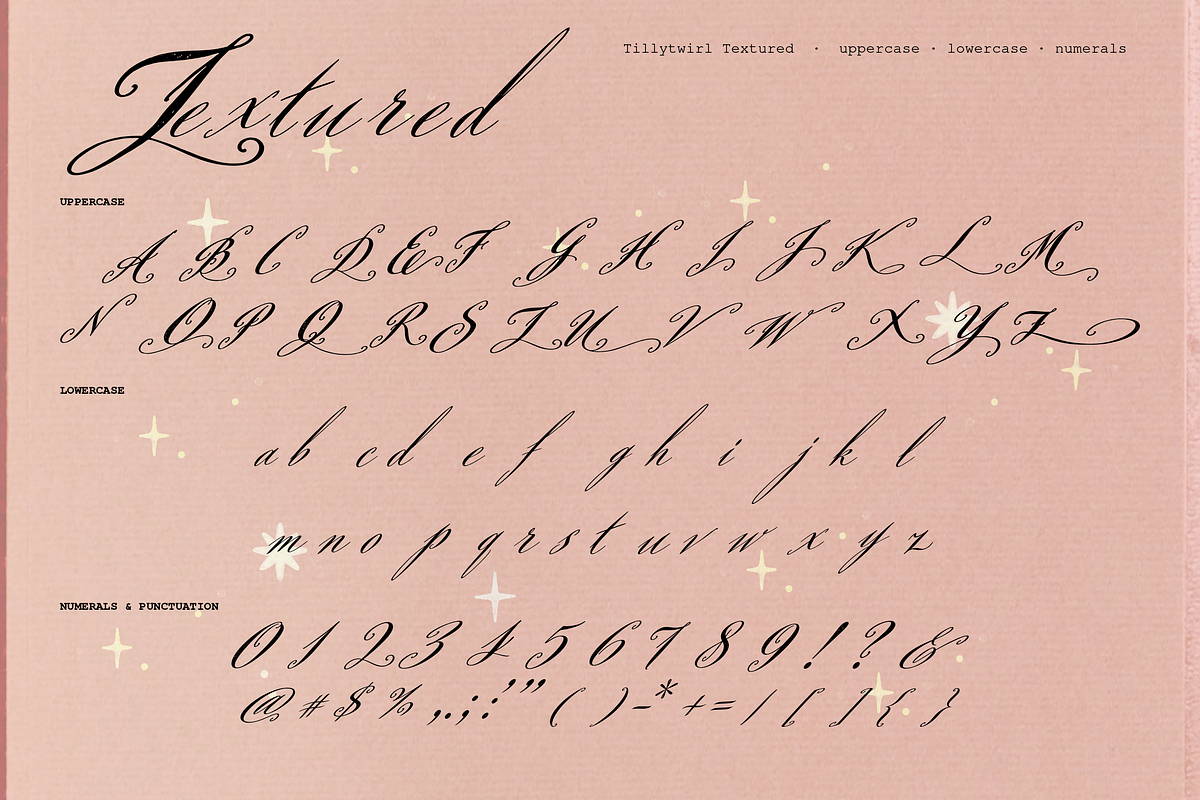 Textured
Tillytwirl Textured · uppercase · lowercase · numerals
UPPERCASE
A B C D E F G H I J K L M
N O P Q R S T U V W X Y Z
LOWERCASE
a b c d e f g h i j k l
m n o p q r s t u v w x y z
NUMERALS & PUNCTUATION
0 1 2 3 4 5 6 7 8 9 ! ? &
@ # $ % , . ; : ’ ” ( ) - * + = / [ ] { }